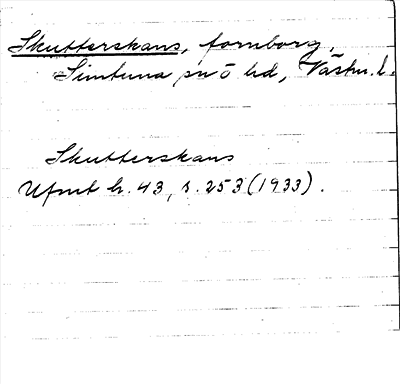 Skutterskans, fornborg,
Simtuna sn o hd, Västm. l.
Skutterskans
Ufmt h. 43, s. 253 (1933).